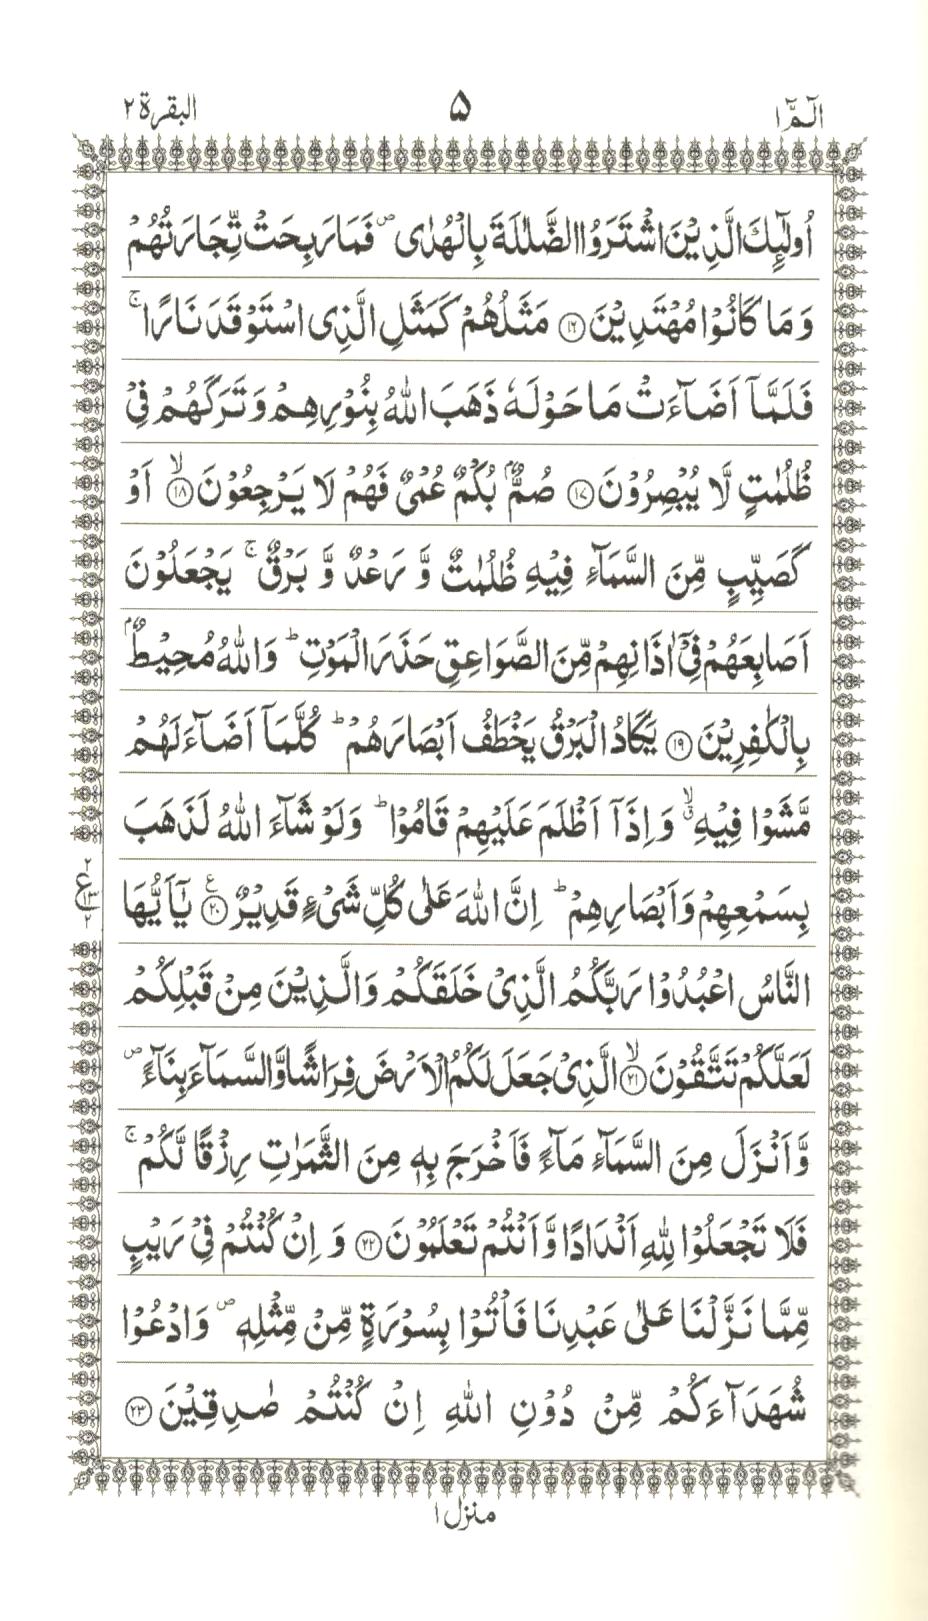 الٓمّٓ ١
٥
البقرة ٢
اُولٰٓئِكَ الَّذِيْنَ اشْتَرَوُا الضَّلٰلَةَ بِالْهُدٰى ۪ فَمَا رَبِحَتْ تِّجَارَتُهُمْ
وَمَا كَانُوْا مُهْتَدِيْنَ ﴿١٦﴾ مَثَلُهُمْ كَمَثَلِ الَّذِى اسْتَوْقَدَ نَارًا ۚ
فَلَمَّاۤ اَضَآءَتْ مَا حَوْلَهٗ ذَهَبَ اللّٰهُ بِنُوْرِهِمْ وَتَرَكَهُمْ فِىْ
ظُلُمٰتٍ لَّا يُبْصِرُوْنَ ﴿١٧﴾ صُمٌّۢ بُكْمٌ عُمْىٌ فَهُمْ لَا يَرْجِعُوْنَ ﴿١٨﴾ۙ اَوْ
كَصَيِّبٍ مِّنَ السَّمَآءِ فِيْهِ ظُلُمٰتٌ وَّ رَعْدٌ وَّ بَرْقٌ ۚ يَجْعَلُوْنَ
اَصَابِعَهُمْ فِىْۤ اٰذَانِهِمْ مِّنَ الصَّوَاعِقِ حَذَرَ الْمَوْتِ ؕ وَاللّٰهُ مُحِيْطٌۢ
بِالْكٰفِرِيْنَ ﴿١٩﴾ يَكَادُ الْبَرْقُ يَخْطَفُ اَبْصَارَهُمْ ؕ كُلَّمَاۤ اَضَآءَ لَهُمْ
مَّشَوْا فِيْهِ ۙۗ وَاِذَاۤ اَظْلَمَ عَلَيْهِمْ قَامُوْا ؕ وَلَوْ شَآءَ اللّٰهُ لَذَهَبَ
بِسَمْعِهِمْ وَاَبْصَارِهِمْ ؕ اِنَّ اللّٰهَ عَلٰى كُلِّ شَىْءٍ قَدِيْرٌ ﴿٢٠﴾ع يٰۤاَيُّهَا
النَّاسُ اعْبُدُوْا رَبَّكُمُ الَّذِىْ خَلَقَكُمْ وَالَّذِيْنَ مِنْ قَبْلِكُمْ
لَعَلَّكُمْ تَتَّقُوْنَ ﴿٢١﴾ۙ الَّذِىْ جَعَلَ لَكُمُ الْاَرْضَ فِرَاشًا وَّالسَّمَآءَ بِنَآءً ۪
وَّاَنْزَلَ مِنَ السَّمَآءِ مَآءً فَاَخْرَجَ بِهٖ مِنَ الثَّمَرٰتِ رِزْقًا لَّكُمْ ۚ
فَلَا تَجْعَلُوْا لِلّٰهِ اَنْدَادًا وَّاَنْتُمْ تَعْلَمُوْنَ ﴿٢٢﴾ وَ اِنْ كُنْتُمْ فِىْ رَيْبٍ
مِّمَّا نَزَّلْنَا عَلٰى عَبْدِنَا فَاْتُوْا بِسُوْرَةٍ مِّنْ مِّثْلِهٖ ۪ وَادْعُوْا
شُهَدَآءَكُمْ مِّنْ دُوْنِ اللّٰهِ اِنْ كُنْتُمْ صٰدِقِيْنَ ﴿٢٣﴾
٢
ع
١٣
٢
منزل ١